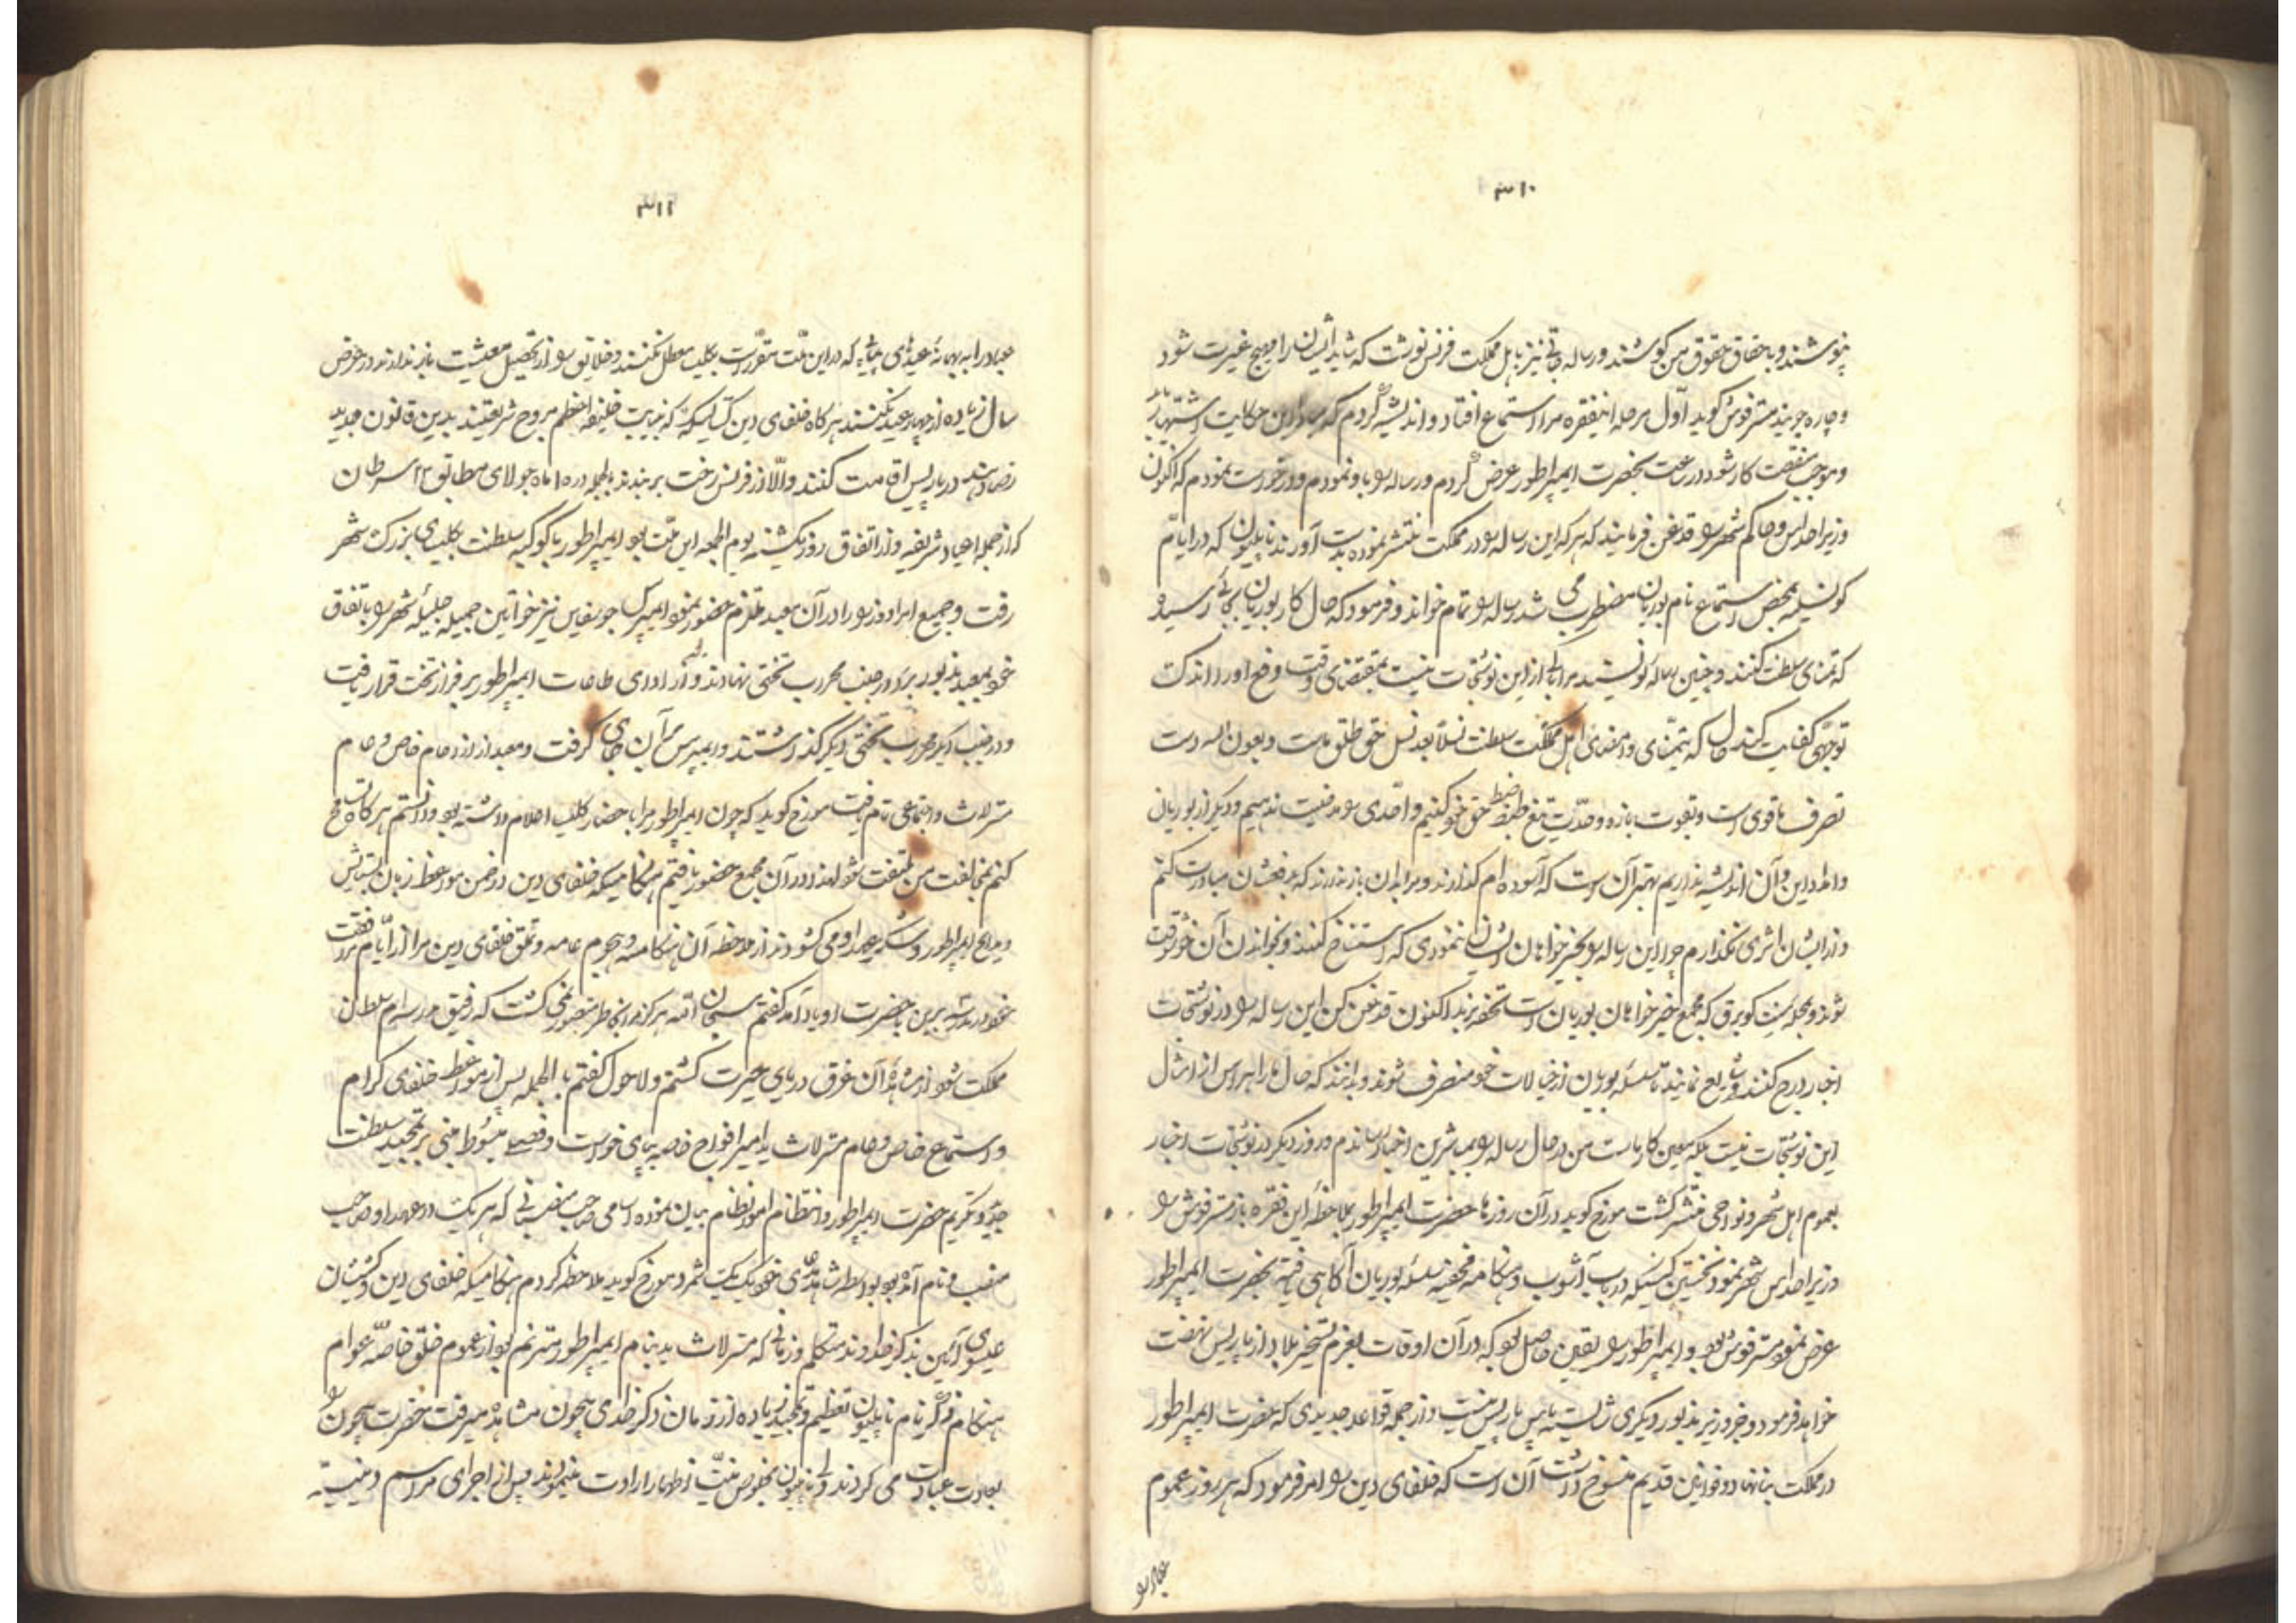 ۳۱۰
بپوشند و باحقاق حقوق من کوشند و رساله جاتی نیز باهل مملکت فرنس نوشت که شاید ایشان را مهیج غیرت شود
و چاره جویند مسترفوش کوید اول مرحله اینفقره مرا استماع افتاد و اندیشه کردم که مبادا این حکایت اشتهار یابد
و موجب منقصت کار شود در ساعت بحضرت ایمپراطور عرض کردم و رساله را باو نمودم و درخواست نمودم که اکنون
وزیر احداس و حاکم شهر را قدغن فرمایند که هر که این رساله را در مملکت منتشر نموده بدست آورند ناپلیون که در ایام
کونسلیه بمحض استماع نام بوربان مضطرب می شد رساله را تمام خواند و فرمود که حال کار بوربان بجائی رسیده
که تمنای سلطنت کنند و چنین رساله نویسند مرا باکی از این نوشتجات نیست بمقتضای وقت دفع او را اندک
توجهی کفایت کند حال که بتمنای و امضای اهل مملکت سلطنت نسلا بعد نسل حق طلق ماست و بعون اله دست
تصرف ما قوی است و بقوت بازو و حدت تیغ حفظ ضبط حق خود کنیم و احدی را مدخلیت ندهیم و دیکر از بوربان
و امداد این و آن اندیشه نداریم بهتر آن است که آسوده ام کذارند و مرا بر آن باز ندارند که بدفعشان مبادرت کنم
و از ایشان اثری نکذارم چرا این رساله را بخیرخواهان ایشان ننمودی که استنساخ کنند و بخواندن آن خوشوقت
شوند و بمحله سنت کوبرق که مجمع خیرخواهان بوربان است تحفه برند اکنون قدغن کن این رساله را در نوشتجات
اخبار درج کنند و شایع نمایند تا سلسله بوربان از خیالات خود منصرف شوند و بدانند که حال ما را هراس از امثال
این نوشتجات نیست بلکه معین کار ماست من در حال رساله را بمباشرین اخبار رساندم و روز دیکر در نوشتجات اخبار
بعموم اهل شهر و نواحی منتشر کشت مورخ کوید در آن روزها حضرت ایمپراطور بملاحظه این فقره باز مسترفوش را
وزیر احداس شهر نمود نخستین کسیکه در باب آشوب و هنکامه مخفیه سلسله بوربان آکاهی یافته بحضرت ایمپراطور
عرض نمود مسترفوش بود و ایمپراطور را یقین حاصل بود که در آن اوقات بعزم تسخیر بلاد از پاریس نهضت
خواهد فرمود و جز وزیر مذبور دیکری شایسته پاس پاریس نیست و از جمله قواعد جدیدی که حضرت ایمپراطور
در مملکت بنا نهاد و قوانین قدیم منسوخ داشت آن است که خلفای دین را امر فرمود که هر روز عموم
عباد را
۳۱۱
عباد را به بهانه عیدهای که در این ملت مقرر است بکلیسا معطل نکنند و خلایق را از تحصیل معیشت باز ندارند در عرض
سال زیاده از چهار عید نکنند هر کاه خلفای دین کتالیکه که به نیابت خلیفه اعظم مروج شریعتند بدین قانون جدید
رضا دهند در پاریس اقامت کنند والا از فرنس رخت بربندند بالجمله در ۱۵ ماه جولای مطابق ۲۳ سرطان
که از جمله اعیاد شریفه و از اتفاق روز یکشنبه یوم الجمعه این ملت بود ایمپراطور با کوکبه سلطنت بکلیسای بزرک شهر
رفت و جمیع امرا و وزرا را در آن معبد ملتزم حضور نمود ایمپرس جوسفاین نیز خواتین جمیله جلیله شهر را باتفاق
خود بمعبد مذبور برد در جنب محراب تختی نهادند و از برای ادای طاعات ایمپراطور بر فراز تخت قرار یافت
و در جنب دیکر محراب تختی دیکر کذاشتند و ایمپرس بر آن جای کرفت و معبد از ازدحام خاص و عام
متلاشت و اجتماعی تام یافت مورخ کوید که چون ایمپراطور مرا باحضار کلیسا اعلام داشته بود و دانستم هر کاه تخلف
کنم بمخالفت من ملتفت شود لهذا در آن مجمع حضور یافتم هنکامیکه خلفای دین در ضمن مواعظ زبان بستایش
و مدایح ایمپراطور و شکر عهد او می کشودند از ملاحظه آن هنکامه و هجوم عامه و تملق خلفای دین مرا از ایام مرافقت
خود در مدرسه برین با حضرت او یاد آمد کفتم سبحان الله هرکز مرا بخاطر متصور نمی کشت که رفیق مدرسه ام سلطان
مملکت شود از مشاهده آن غرق دریای حیرت کشتم و لاحول کفتم بالجمله پس از مواعظه خلفای کرام
و استماع خاص و عام مستر لاثید امیر افواج خاصه بپای خواست و فصلی مبسوط مبنی بر تمجید سلطنت
جدید و تکریم حضرت ایمپراطور و انتظام امور نظام بیان نموده اسامی صاحب منصبانی که هر یک در عهد او صاحب
منصب و نام آمده بود بواسطه شاهدهای خود یک یک شمرد مورخ کوید ملاحظه کردم هنکامیکه خلفای دین و کشیشان
عیسوی آئین بذکر خداوند متکلم و زمانی که مستر لاثید بنام ایمپراطور مترنم بود از عموم خلق خاصه عوام
هنکام ذکر نام ناپلیون تعظیم و تمجید زیاده از زمان ذکر خدای بیچون مشاهده میرفت حضرت بیچون را
بعادت عبادت می کردند و ناپلیون بخلوص نیت اظهار ارادت مینمودند پس از اجرای مراسم دینیه